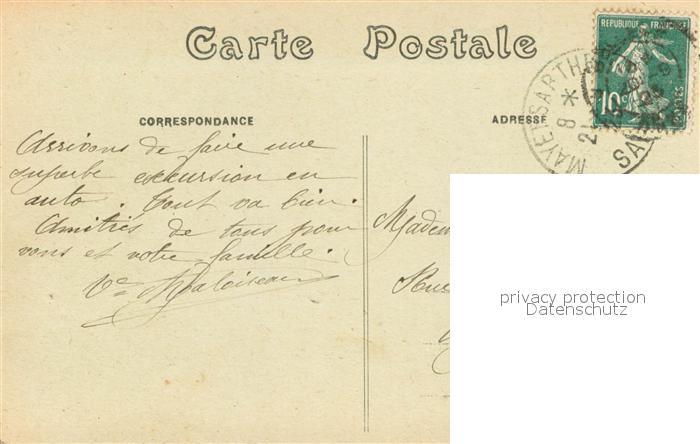 Carte Postale
REPUBLIQUE FRANÇAISE
10c
POSTES
MAYET SARTHE
8 *
21
CORRESPONDANCE
ADRESSE
Arrivons de faire une
superbe excursion en
auto. Tout va bien.
Amitiés de tous pour
vous et votre famille.
Vve
Madem
Rue
privacy protection
Datenschutz